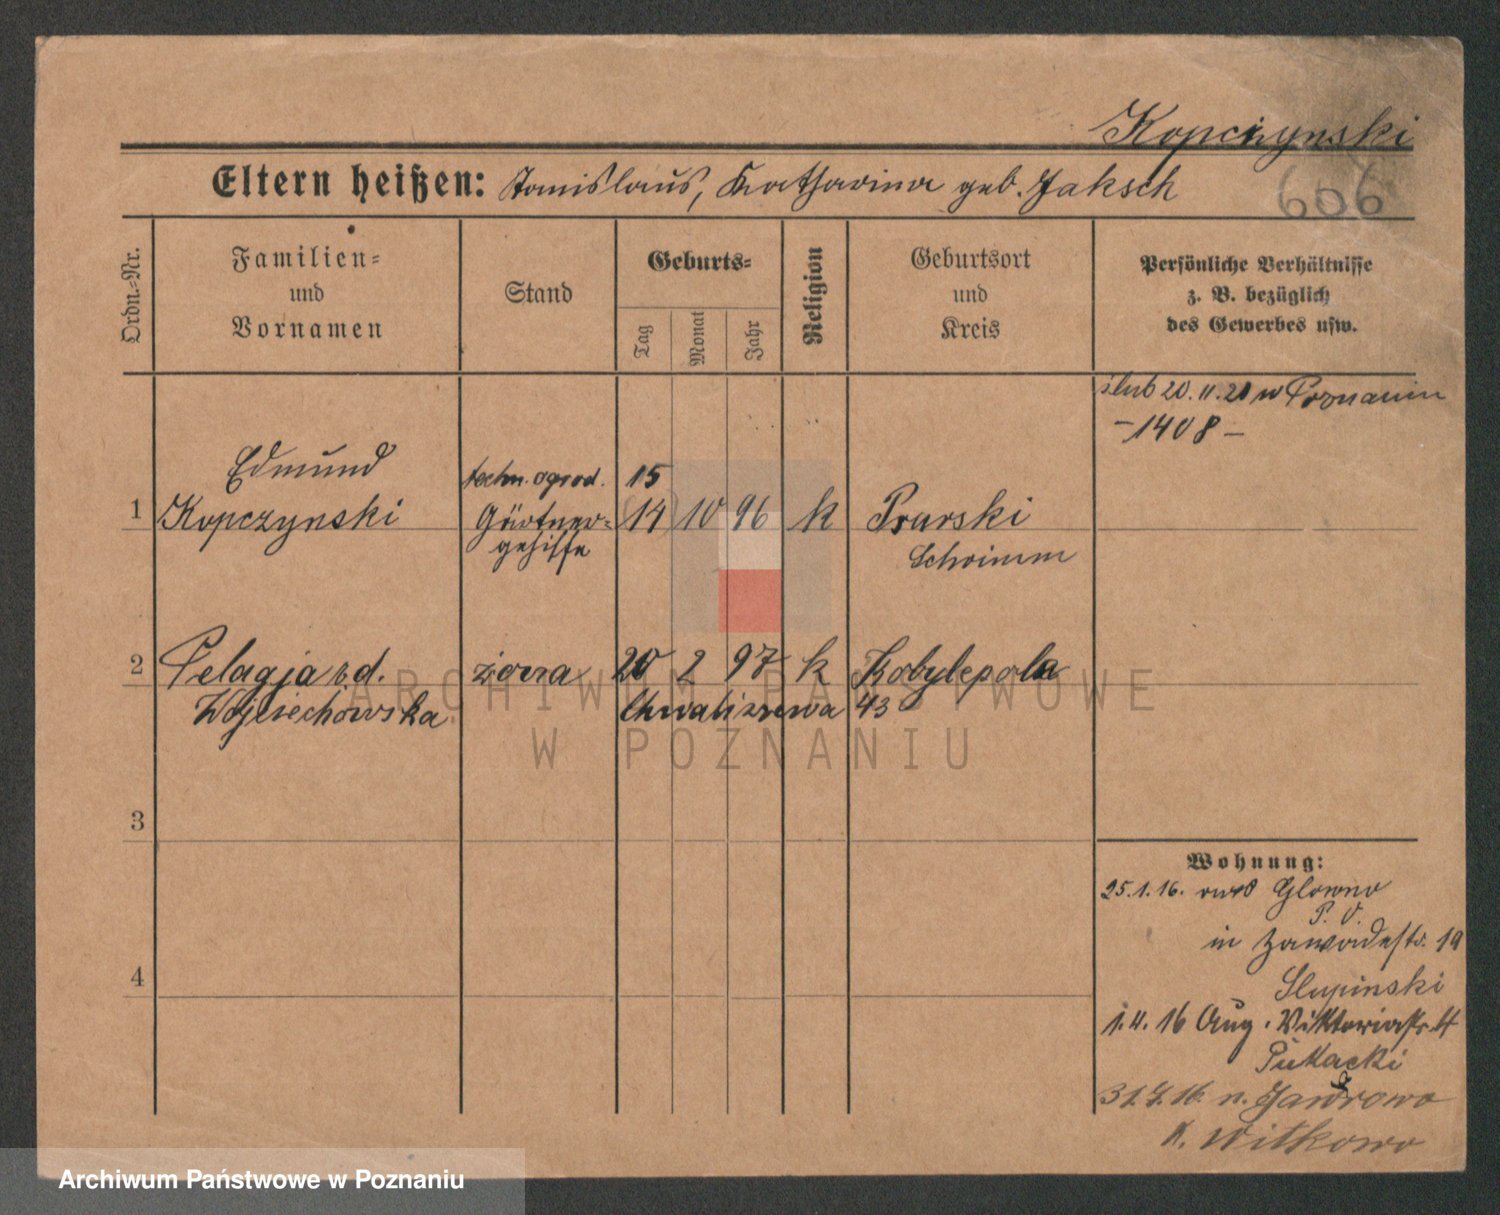 Kopczynski
Eltern heißen: Stanislaus, Katharina geb. Jaksch
606
Ordn.-Nr.
Familien-
und
Vornamen
Stand
Geburts-
Tag
Monat
Jahr
Religion
Geburtsort
und
Kreis
Persönliche Verhältnisse
z. B. bezüglich
des Gewerbes usw.
ślub 20.11.21 w Poznaniu
-1408-
1
Edmund
Kopczynski
techn. ogrod.
Gärtner-
gehilfe
15
14 10 96 k
Prurski
Schrimm
2 Pelagja z d. żona 20 2 97 k Kobylepole
Wojciechowska Chwaliszewa 43
3
4
Wohnung:
25.1.16. Glowno
P. O.
in Zawadestr. 19
Slupinski
1.4.16 Aug. Viktoriastr. 4
31.7.16 n. Jaworowo
K. Witkowo
ARCHIWUM PAŃSTWOWE
W POZNANIU
Archiwum Państwowe w Poznaniu